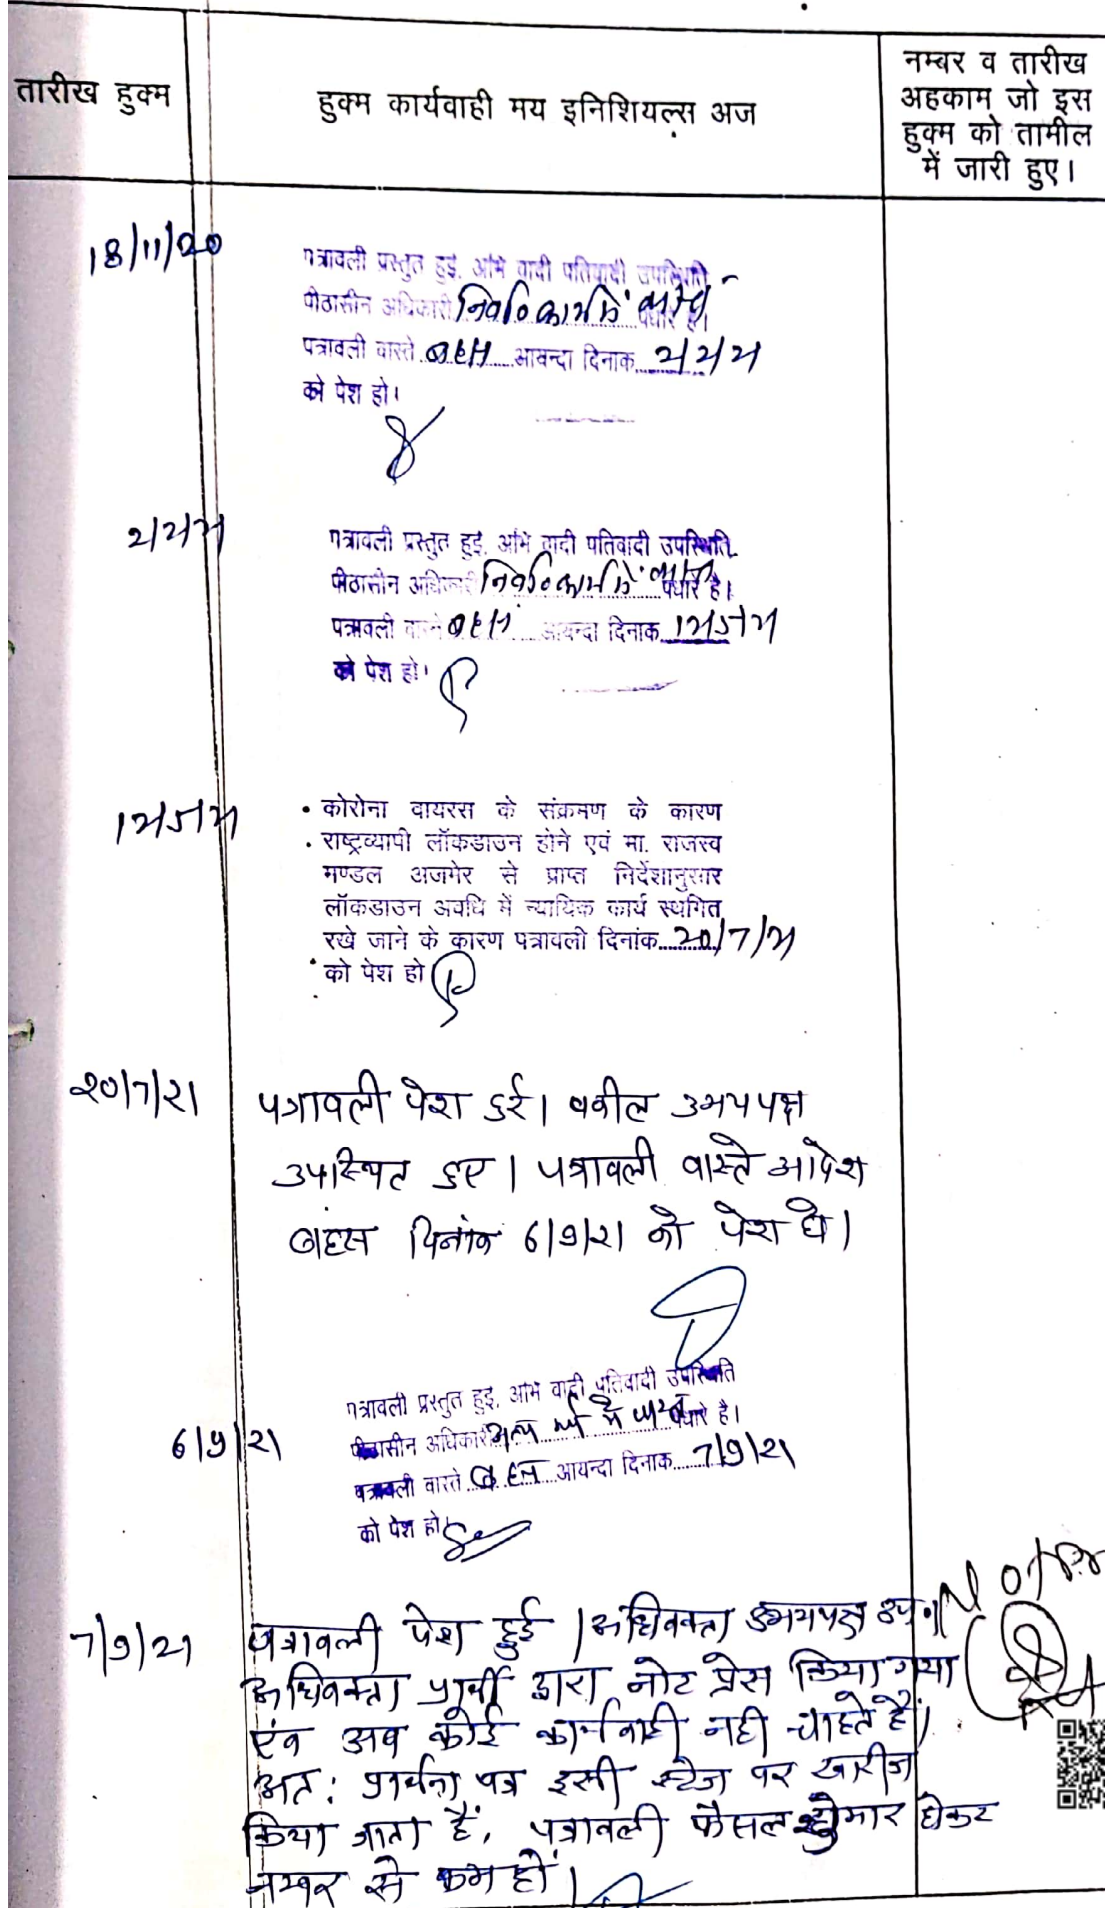 तारीख हुक्म
हुक्म कार्यवाही मय इनिशियल्स अज
नम्बर व तारीख
अहकाम जो इस
हुक्म को तामील
में जारी हुए।
18/11/20
पत्रावली प्रस्तुत हुई, अभि वादी पतिवादी उपस्थिति
पीठासीन अधिकारी पधारे है।
पत्रावली वास्ते बहस आयन्दा दिनाक
को पेश हो।
पत्रावली प्रस्तुत हुई, अभि वादी पतिवादी उपस्थिति
पीठासीन अधिकारी पधारे है।
पत्रावली वास्ते बहस आयन्दा दिनाक
को पेश हो।
कोरोना वायरस के संक्रमण के कारण
राष्ट्रव्यापी लॉकडाउन होने एवं मा. राजस्व
मण्डल अजमेर से प्राप्त निर्देशानुसार
लॉकडाउन अवधि में न्यायिक कार्य स्थगित
रखे जाने के कारण पत्रावली दिनांक 20/7/21
को पेश हो
20/7/21
पत्रावली पेश हुई। वकील उभयपक्ष
उपस्थित हुए। पत्रावली वास्ते आदेश
बहस दिनांक 6/9/21 को पेश हो।
6/9/21
पत्रावली प्रस्तुत हुई, अभि वादी पतिवादी उपस्थिति
पीठासीन अधिकारी पधारे है।
पत्रावली वास्ते बहस आयन्दा दिनाक 7/9/21
को पेश हो
7/9/21
पत्रावली पेश हुई। अधिवक्ता उभयपक्ष उप.।
अधिवक्ता प्रार्थी द्वारा नोट प्रेस किया गया
एंव अब कोई कार्यवाही नही चाहते हैं।
अत: प्रार्थना पत्र इसी स्टेज पर खारीज
किया जाता हैं, पत्रावली फैसल शुमार होकर
नम्बर से कम हो।